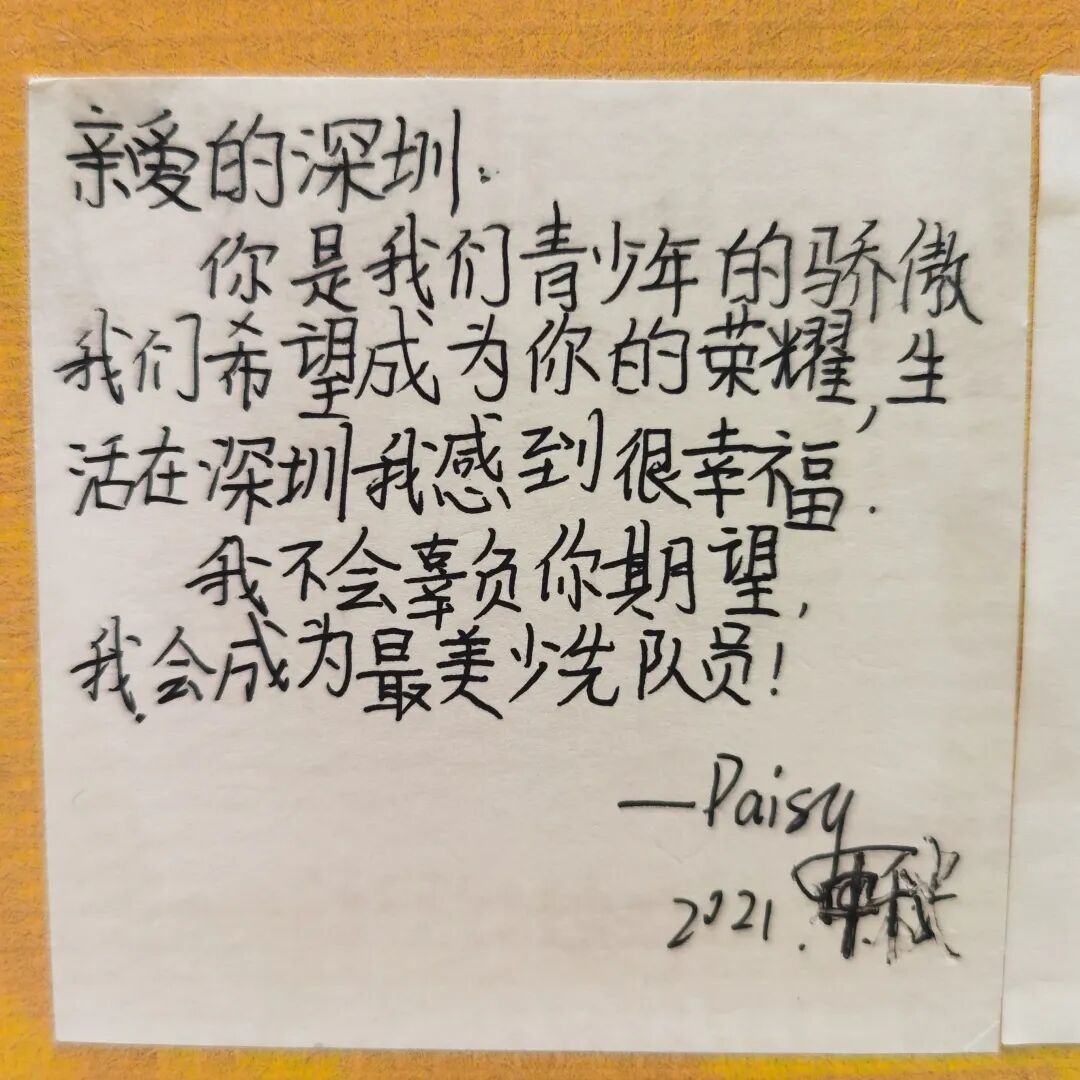 亲爱的深圳：
你是我们青少年的骄傲
我们希望成为你的荣耀,生
活在深圳我感到很幸福.
我不会辜负你期望,
我会成为最美少先队员!
—Paisy
2021.